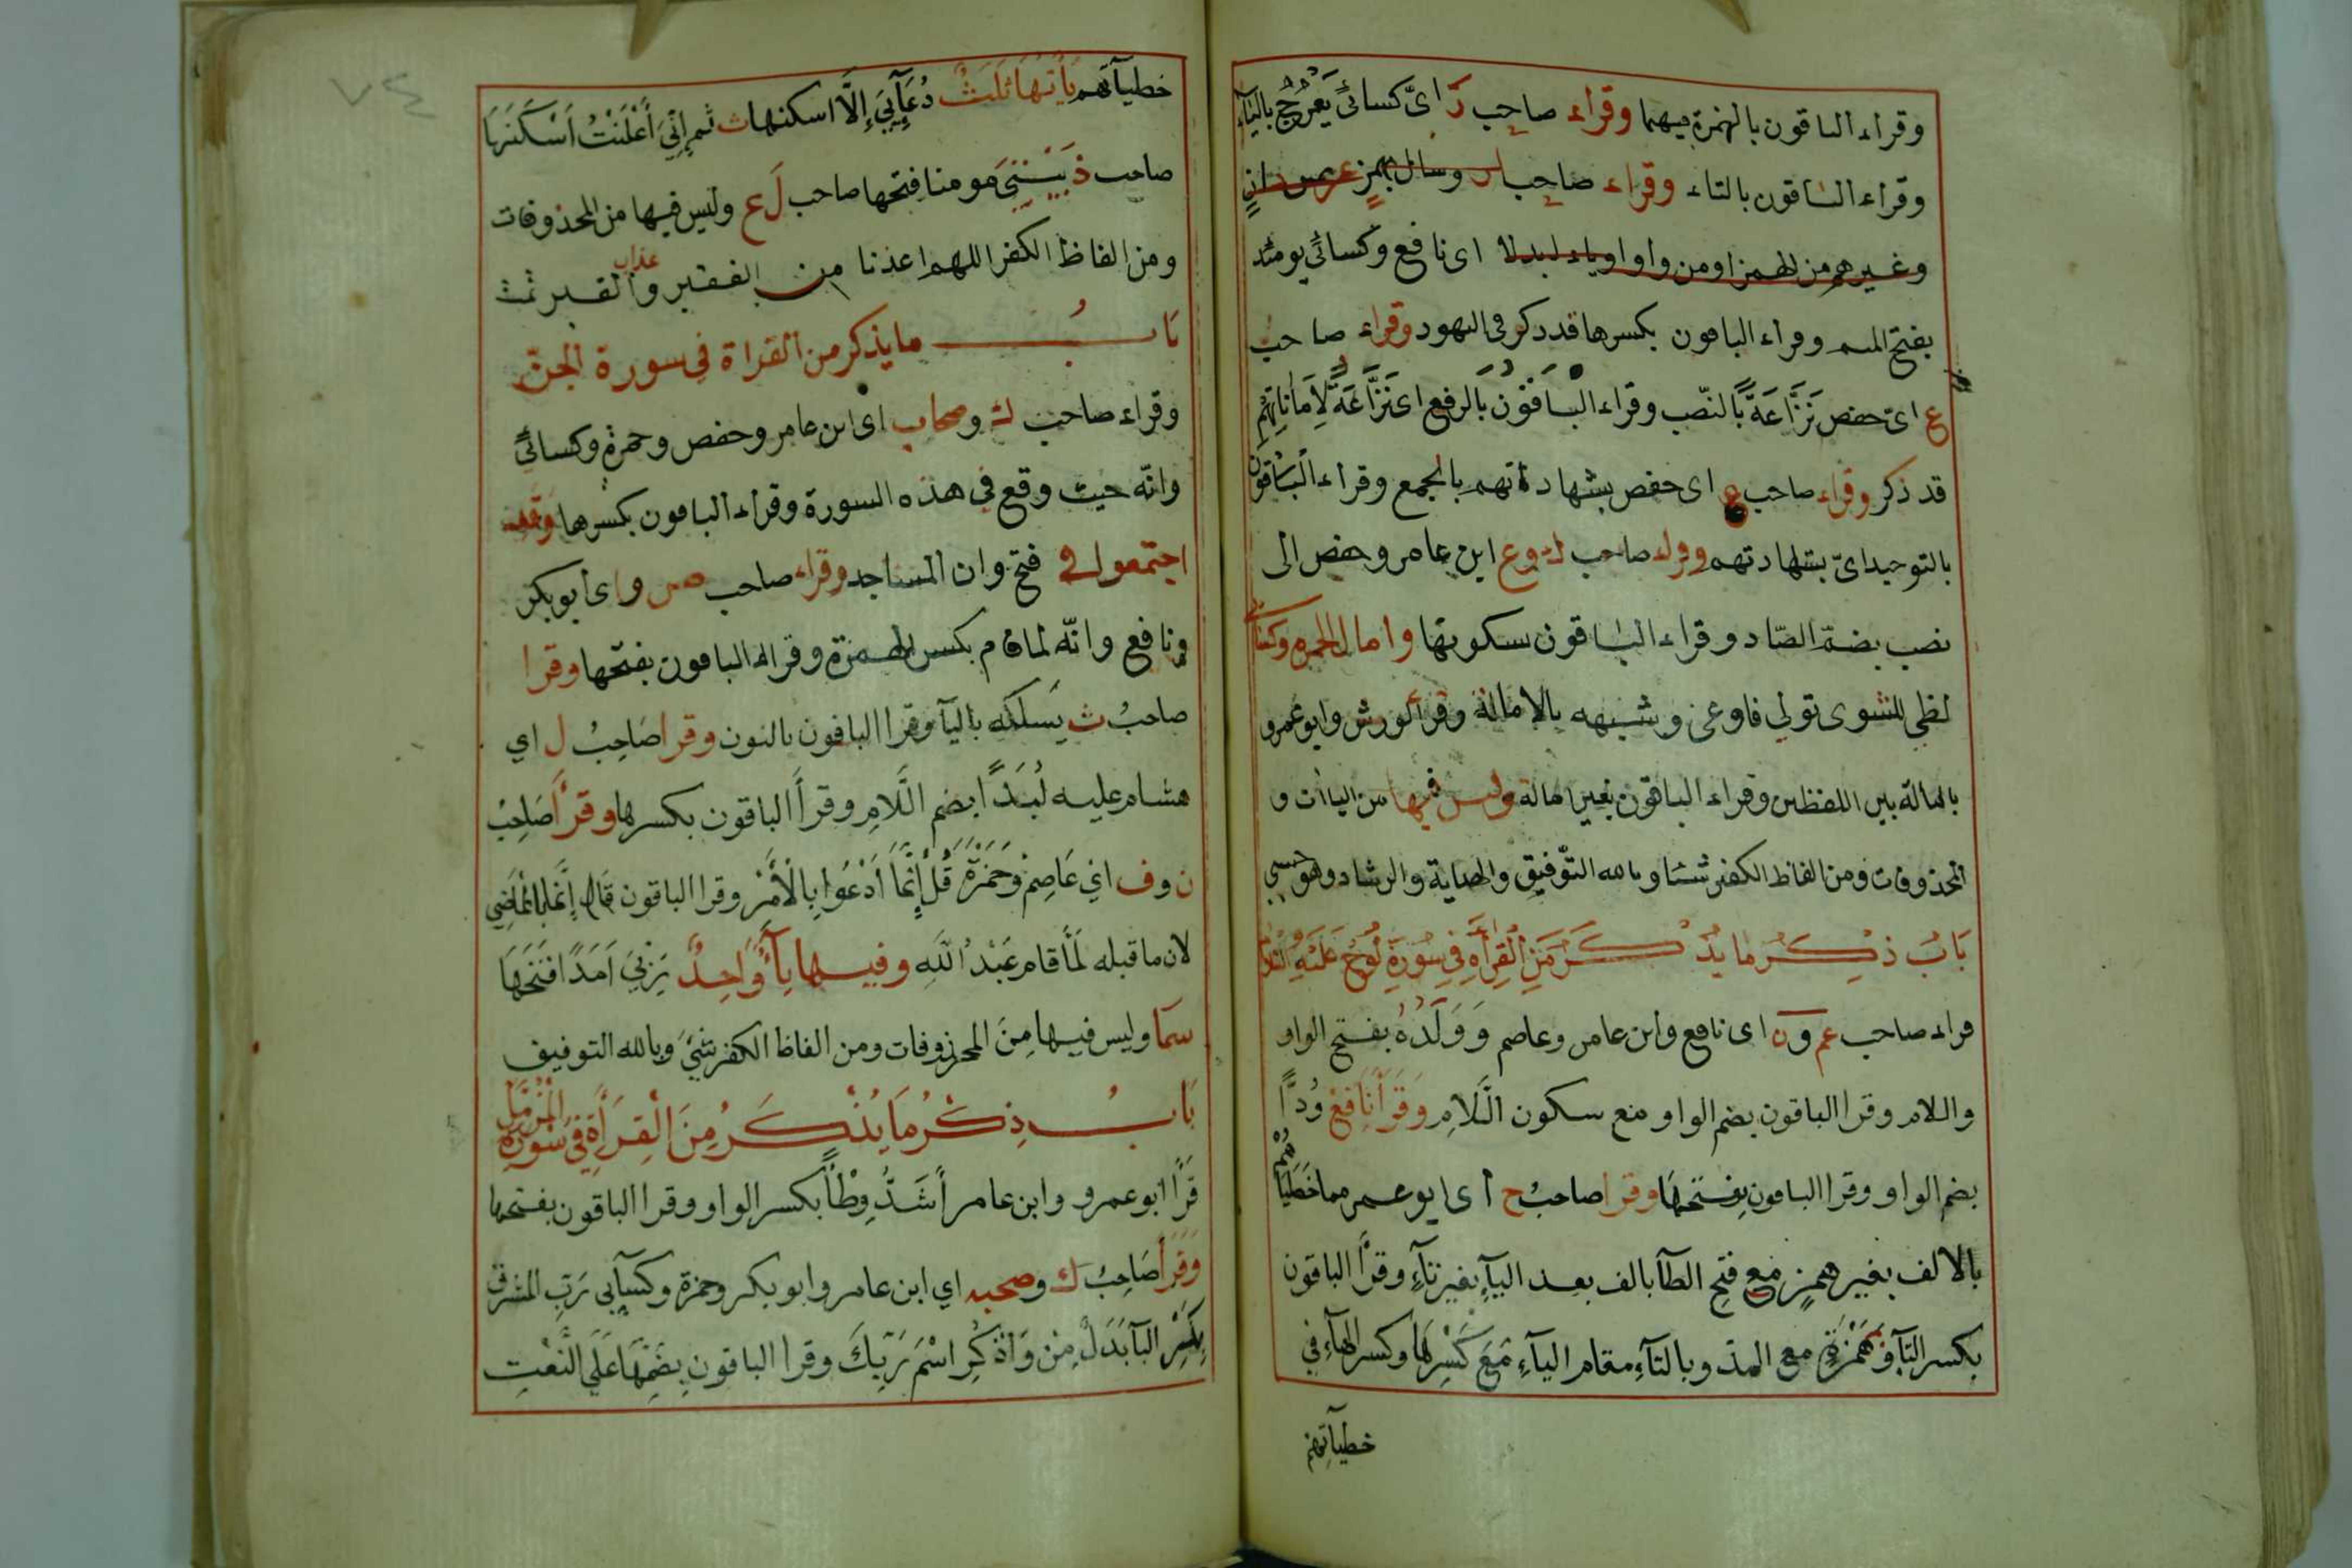 وقراء الباقون بالهمزة فيهما وقراء صاحب ر اى كسائى يعرج بالياء
وقراء الباقون بالتاء وقراء صاحب وسائل بهمز
وغيرهم من الهمز او من واو او ياء ابدلا اى نافع وكسائى يومئذ
بفتح الميم وقراء الباقون بكسرها قد ذكر فى الهود وقراء صاحب
ع اى حفص نَزَّاعَةً بالنصب وقراء الباقون بالرفع اى نَزَّاعَةٌ لِأَمَانَاتِهِمْ
قد ذكر وقراء صاحب ع اى حفص بشهاداتهم بالجمع وقراء الباقون
بالتوحيد اىّ بشهادتهم وقراء صاحب ك وع ابن عامر وحفص الى
نصب بضمة الصّاد وقراء الباقون سكونها وامال الحمزه وكسائى
لظى للشوى تولي فاوعى وشبهه بالامالة وقرأ ورش وابو عمرو
بامالة بين اللفظين وقراء الباقون بغير امالة وليس فيها من الياآت و
المحذوفات ومن الفاظ الكفر شئا وبالله التّوفيق والهداية والرشاد وهو حسبي
بَابُ ذِكْرُ ما يُذْكَرُ مِنَ الْقِرأَةِ فِي سُورَةِ نُوحُ عَلَيْهِ السَّلَامُ
قراء صاحب عم ون اى نافع وابن عامر وعاصم وَوَلَدُهُ بفتح الواو
واللام وقرا الباقون بضم الواو ومنع سكون اللَّامِ وَقَرَأَ نَافِعْ وُدًّا
بضم الواو وقرا الباقون بفتحها وقرا صاحبُ ح أى ابو عمر مما خَطَيَاهُمْ
بالالف بغير همزٍ مع فتح الطآ بالف بعد اليآءِ بغير تآءٍ وقرأ الباقون
بكسر الطآ وهَمْزَةٍ مع المدّ وبالتآءِ مقام اليآءِ مَعَ كَسْرِهَا وكسر الهآءِ في
خطيآتهم
خطيآتهم يآتها ثَلَثُ دُعَآئِيَ إِلَّا اسكنها ث ثم إِنِّيَ أَعْلَنْتُ اَسْكَنَهَا
صاحب ذ بَيْتِيَ مومنا فتحها صاحب ل ع وليس فيها من المحذوفات
ومن الفاظ الكفر اللهم اعذنا من الفقير وعذاب القبر تمت
بَابُ ما يذكر من القراة في سورة الجنّ
وقراء صاحب ك وصحاب اى ابن عامر وحفص وحمزة وكسائىّ
وانّه حيث وقع في هذه السورة وقراء الباقون بكسرها
اجتمعوا فى فتح وان المساجد وقراء صاحب ص واى أبو بكر
ونافع وانّه لما قام بكسر الهمزة وقراء الباقون بفتحها وقرا
صاحبُ ث يَسلكه باليآ وقرا الباقون بالنون وقرا صَاحِبُ ل اي
هشام عليه لُبَدًا بضم اللَّامِ وقرأَ الباقون بكسرها وقرأ صَاحِبُ
ن وف اي عَاصِمْ وَحَمْزَةْ قُلْ إِنَّمَا اَدْعُوا بِالْأَمْرِ وقرا الباقون قَالَ إِنَّمَا بالْمَاضِي
لان ما قبله لَمَّا قام عَبْدُ اللَّهِ وفيها يآءٌ وَاحِدٌ رَبِّيَ اَمَدًا فتَحَهَا
سَمَا وليس فيها مِنَ المحزوفات ومن الفاظ الكفر شئ وبالله التوفيق
بَابُ ذِكْرُ مَا يُذْكَرُ مِنَ الْقِرَأَةِ فِي سُورَةِ الْمُزَّمِّل
قرَأَ ابو عمرو وابن عامر أَشَدُّ وِطْأً بكسر الواو وقرا الباقون بفتحها
وَقَرَأَ صَاحِبُ ك وصحبه اي ابن عامر وابو بكر وحمزة وكسآئى رَبِّ المشرق
بِكَسْرِ البآ بَدَلٌ مِنْ وَاذْكُرِ اسْمَ رَبِّكَ وقرا الباقون بِضَمِّهَا عَلَي النَّعْتِ
٧٤